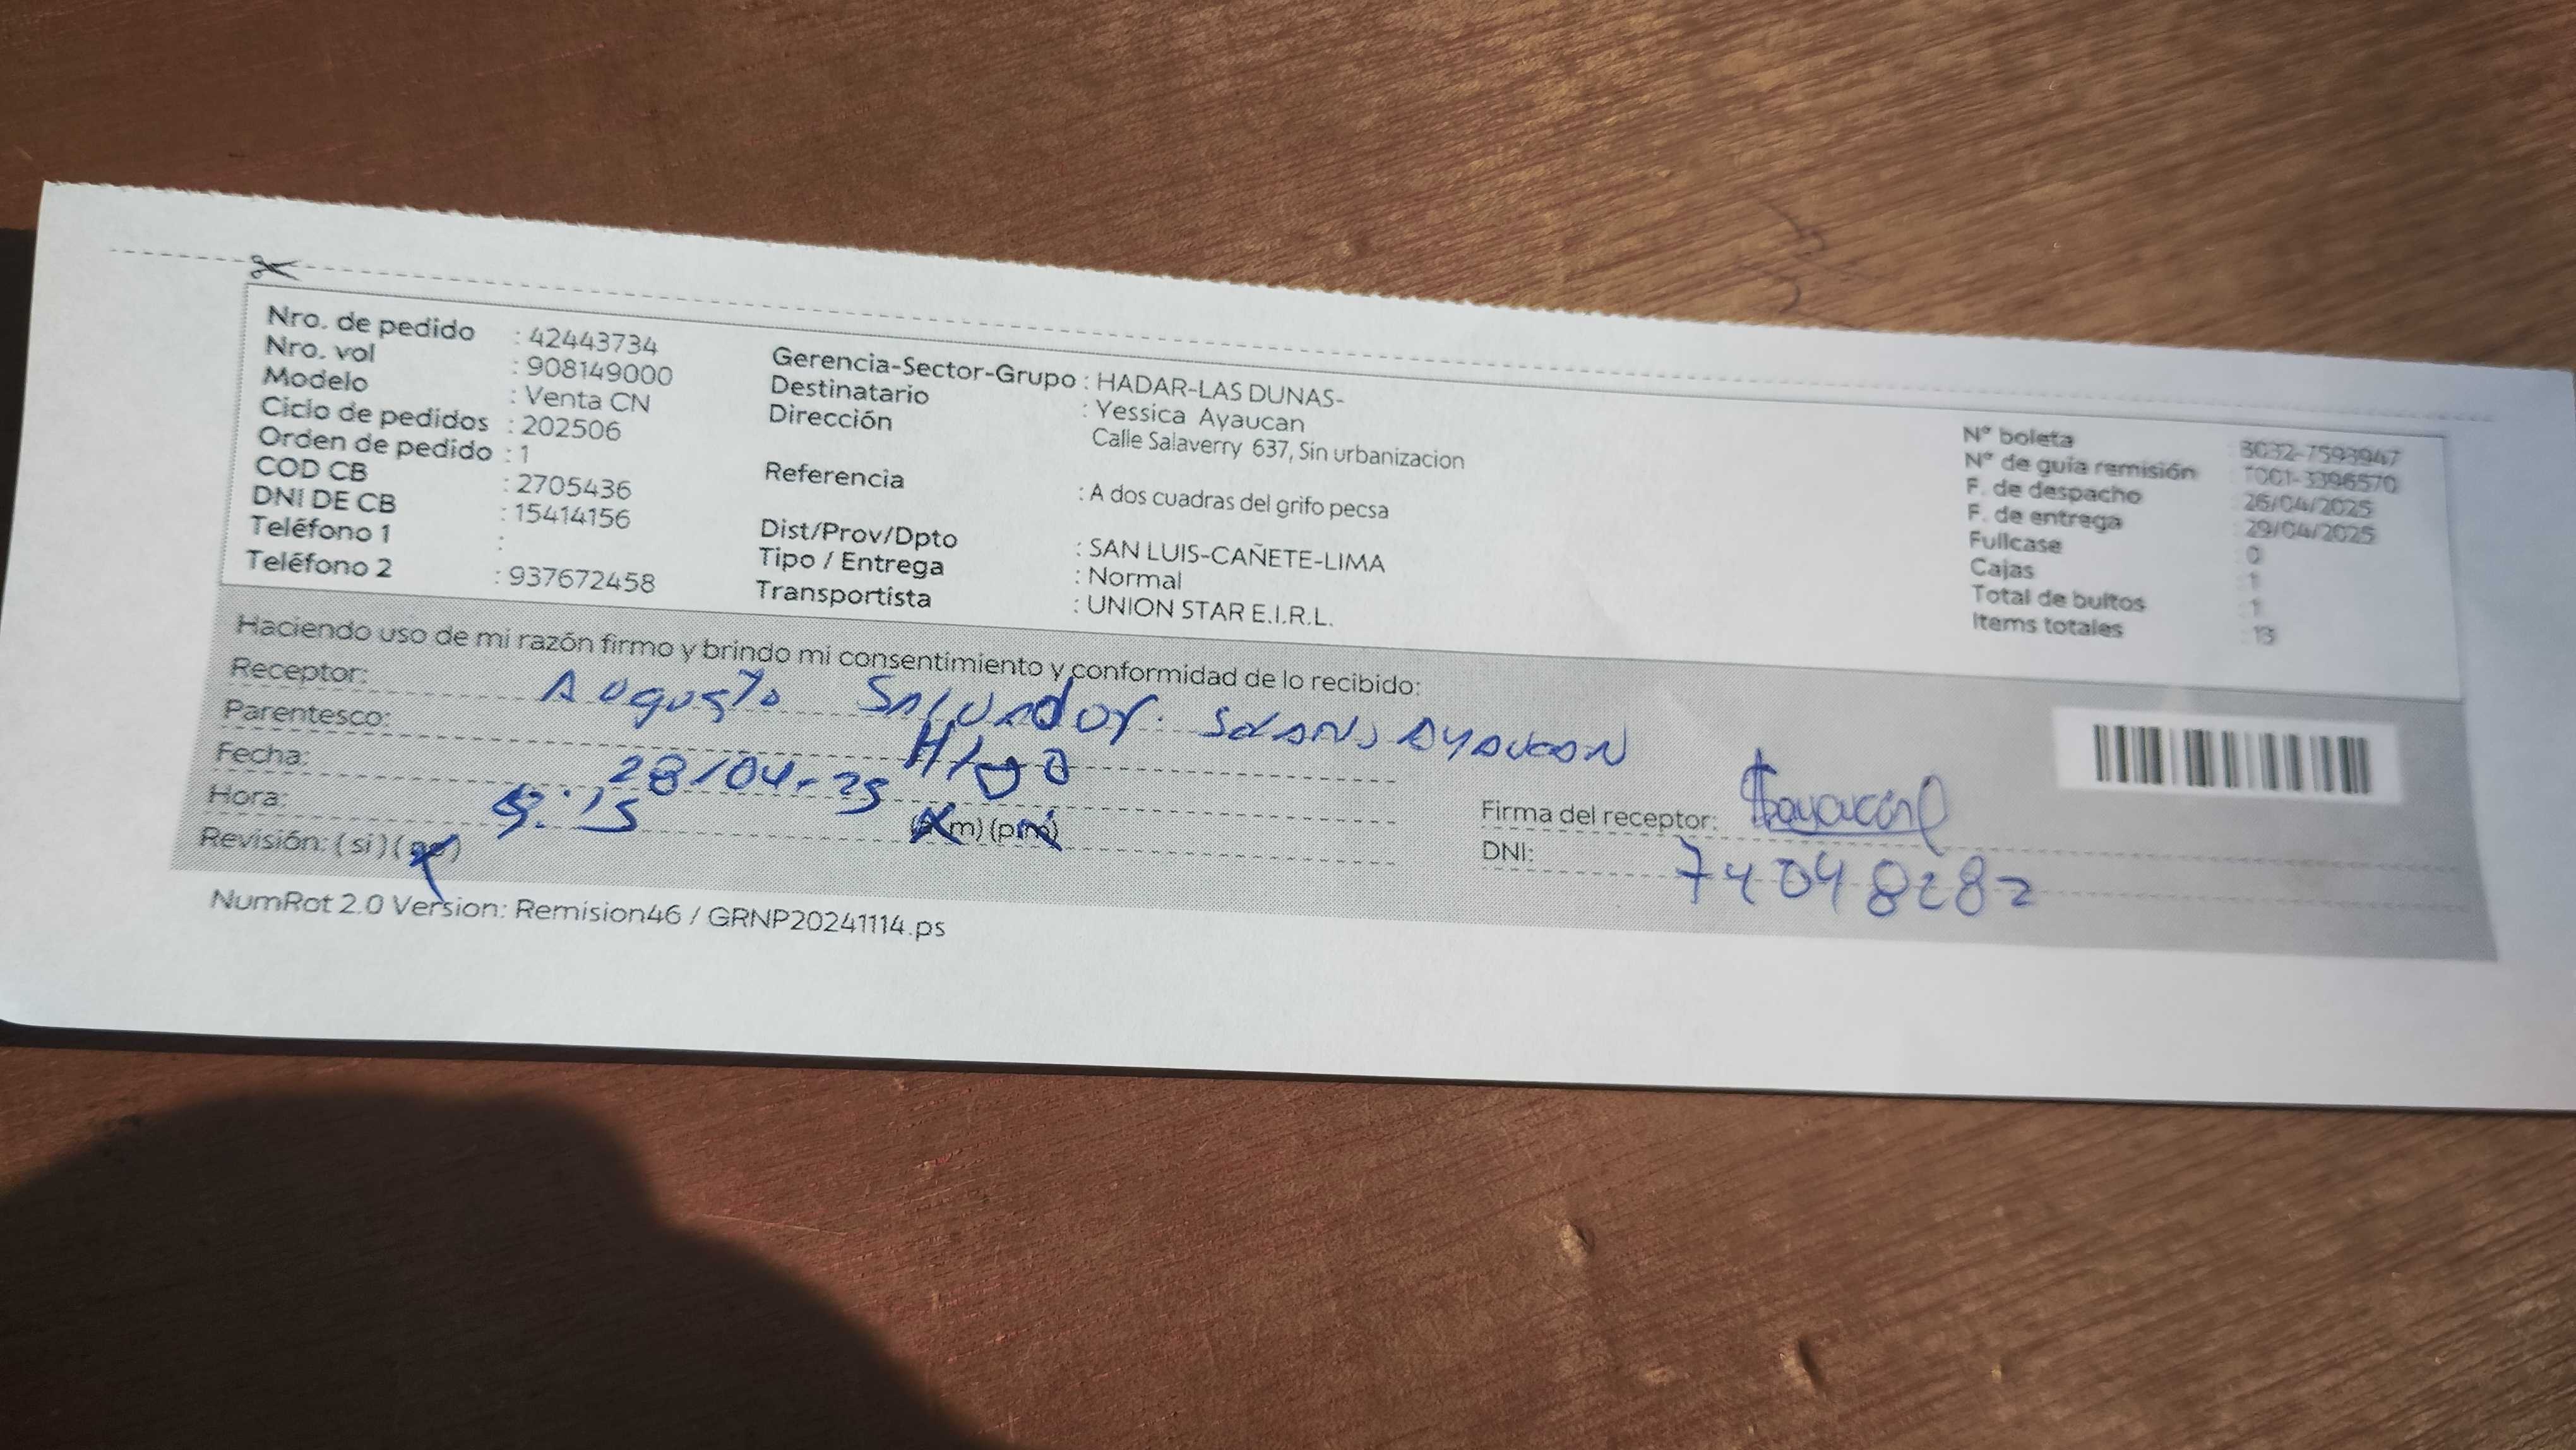 Nro. de pedido : 42443734
Nro. vol : 908149000
Modelo : Venta CN
Ciclo de pedidos : 202506
Orden de pedido : 1
COD CB : 2705436
DNI DE CB : 15414156
Teléfono 1 :
Teléfono 2 : 937672458
Gerencia-Sector-Grupo : HADAR-LAS DUNAS-
Destinatario : Yessica Ayaucan
Dirección Calle Salaverry 637, Sin urbanizacion
Referencia : A dos cuadras del grifo pecsa
Dist/Prov/Dpto : SAN LUIS-CAÑETE-LIMA
Tipo / Entrega : Normal
Transportista : UNION STAR E.I.R.L.
N° boleta 3032-7593947
N° de guía remisión : T001-3396570
F. de despacho : 26/04/2025
F. de entrega : 29/04/2025
Fullcase : 0
Cajas : 1
Total de bultos : 1
Items totales : 13
Haciendo uso de mi razón firmo y brindo mi consentimiento y conformidad de lo recibido:
Receptor: Augusto Salvador AYAUCAN
Parentesco: Hijo
Fecha: 28/04-25
Hora: :15 (a.m) (p.m)
Revisión: ( si ) ( no )
Firma del receptor:
DNI: 74048282
NumRot 2.0 Version: Remision46 / GRNP20241114.ps